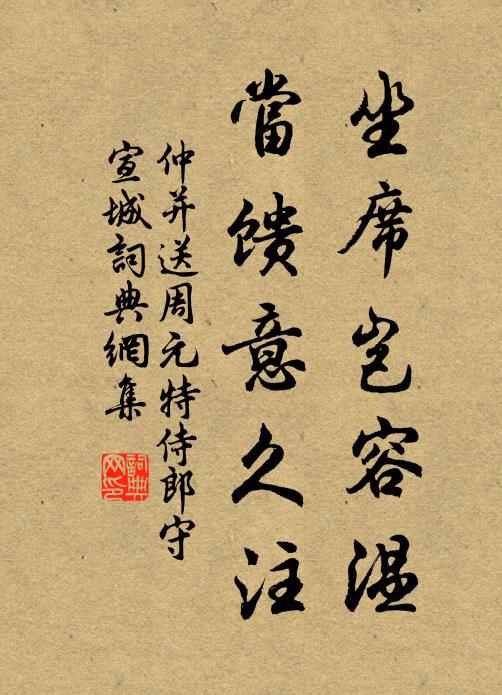 坐席岂容温
當馈意久注
仲并送周元特侍郎守
宣城詞典網集
詞典网印